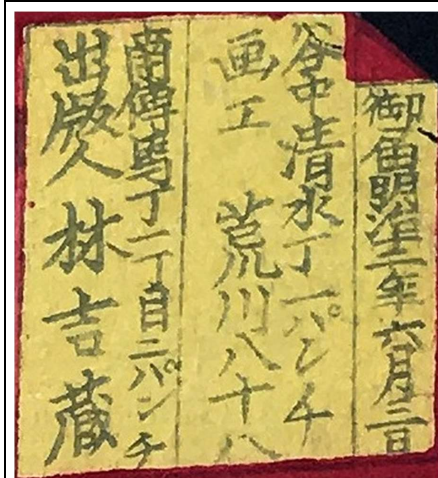 御届明治十二年六月二日
谷中清水丁一パンチ
画工 荒川八十八
南傳馬丁一丁目二パンチ
出版人 林吉蔵